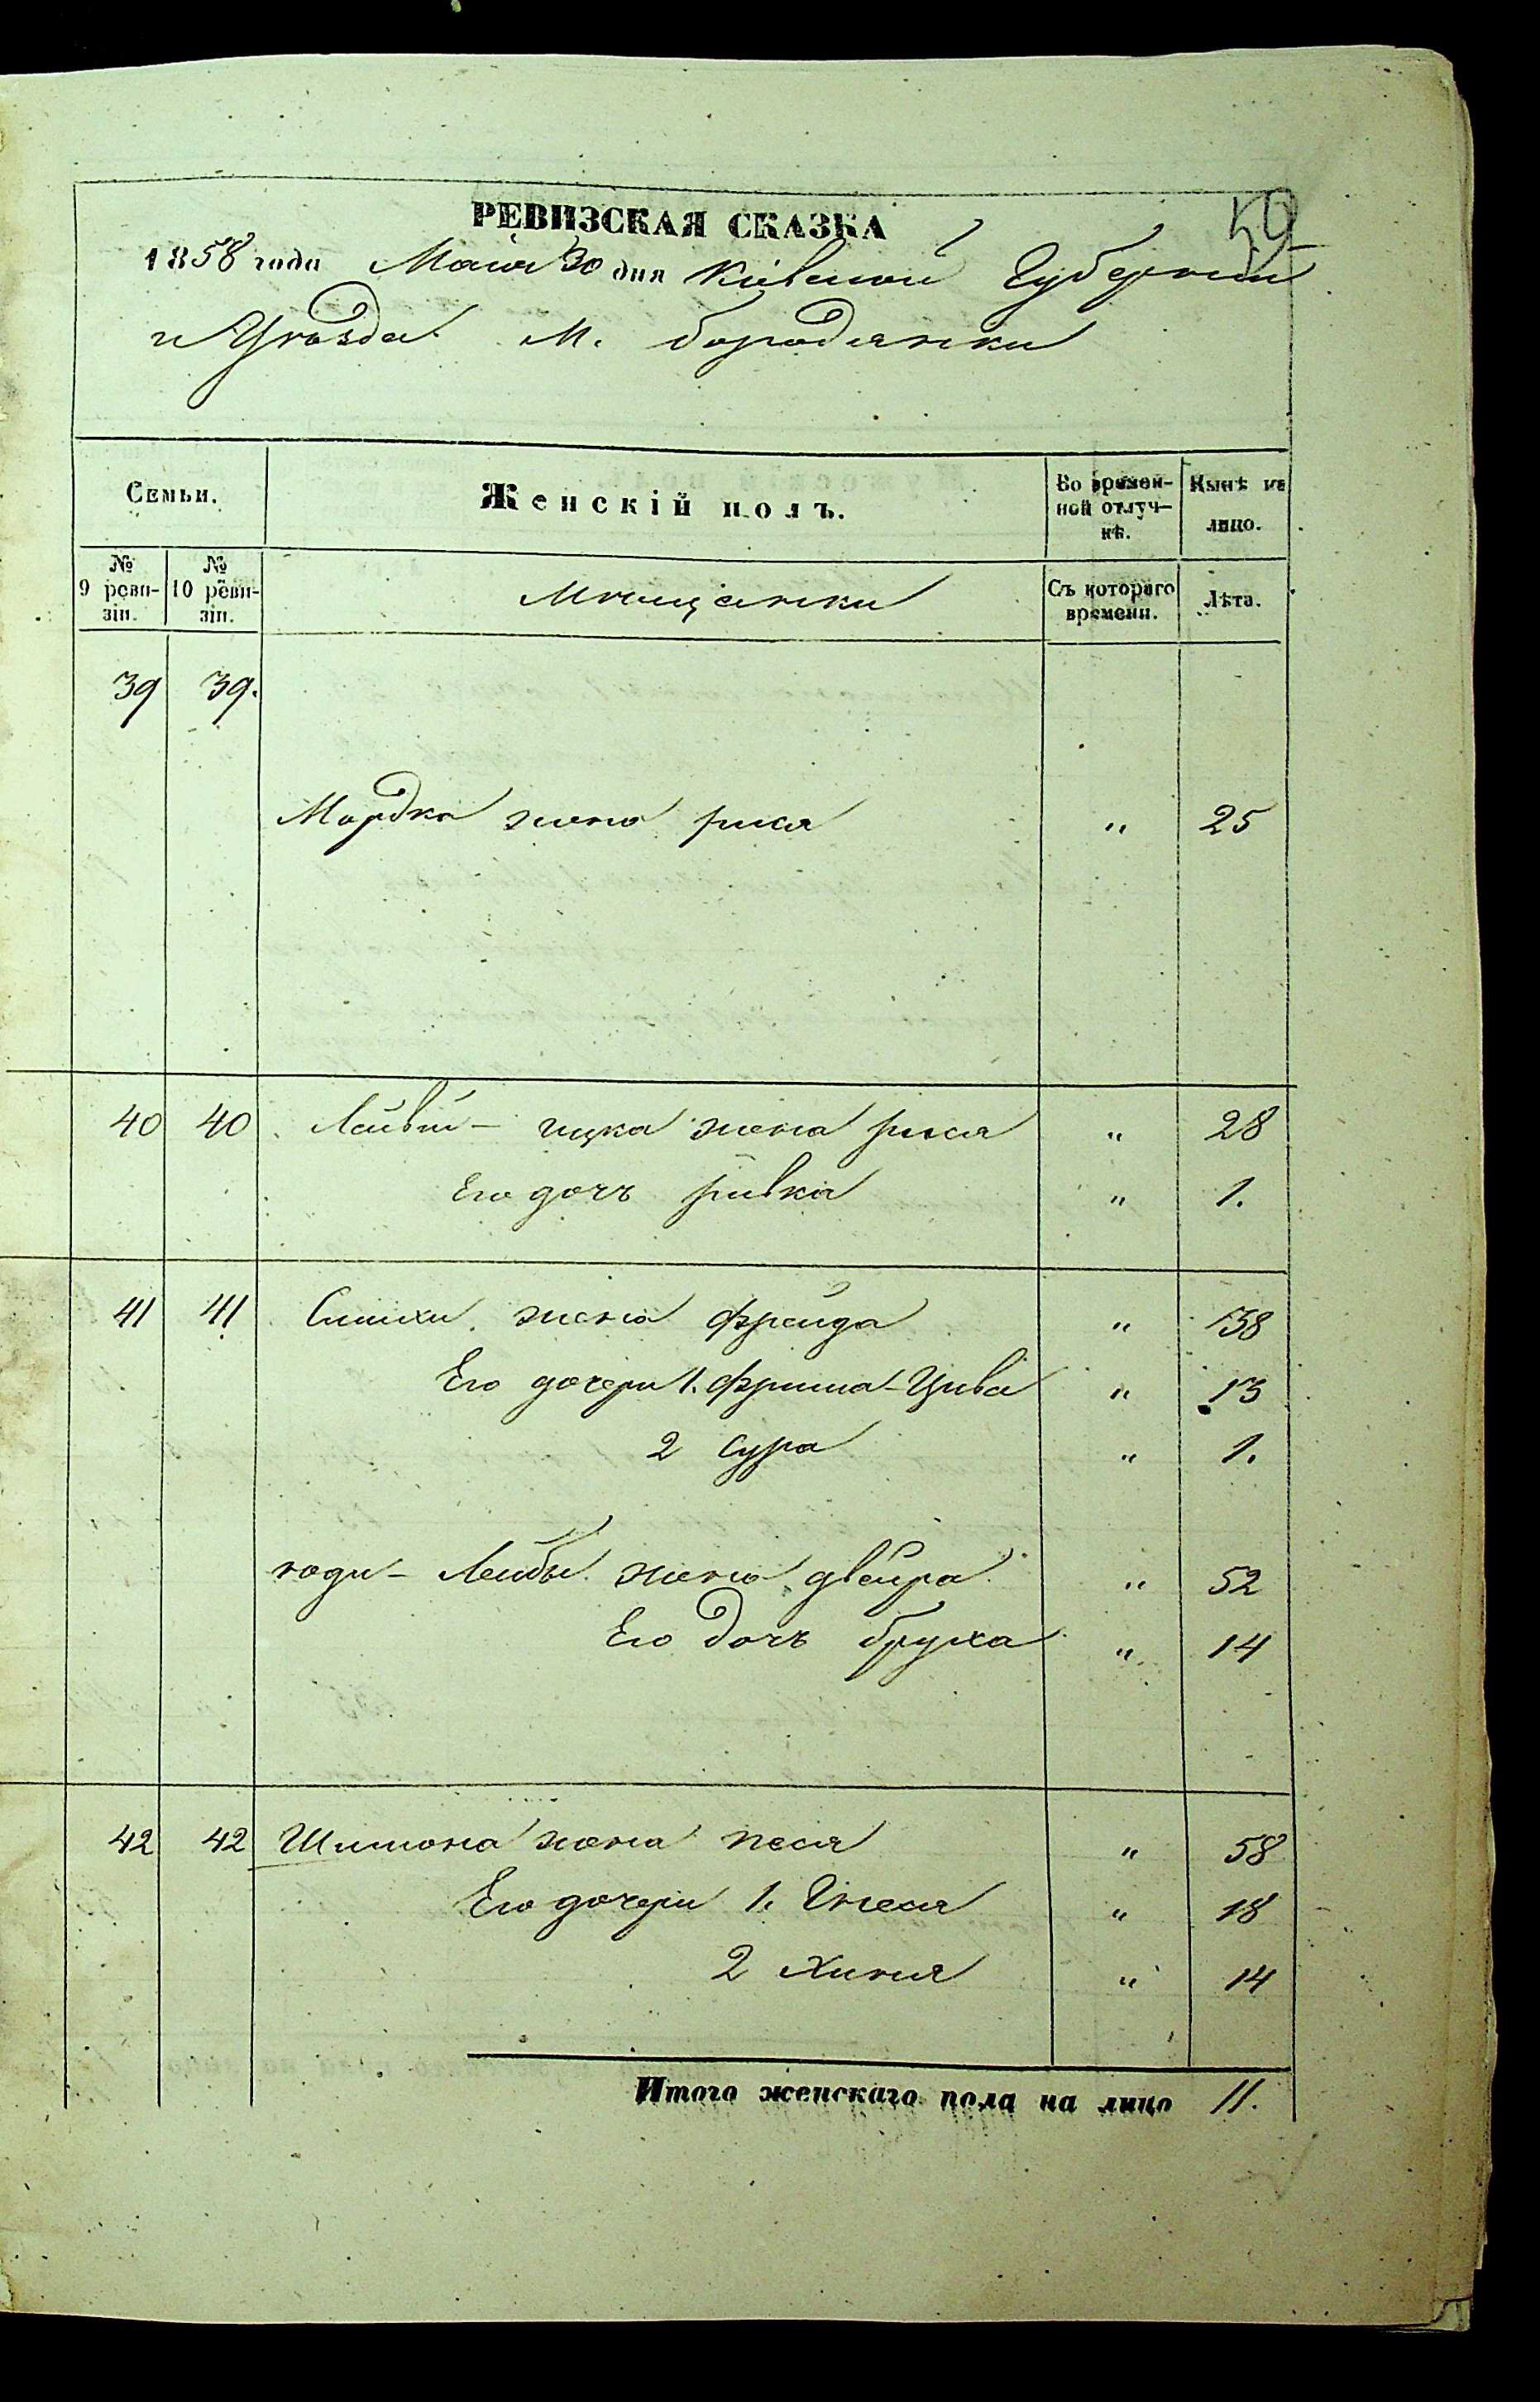 59
РЕВИЗСКАЯ СКАЗКА
1858 года Мая 30 дня Кіевской Губерніи
и Уѣзда М. Бородянки
Семьи.
Женскій полъ.
Во времен-
ной отлуч-
кѣ.
Нынѣ на
лицо.
№
9 реви-
зіи.
№
10 реви-
зіи.
Мѣщанки
Съ котораго
времени.
Лѣта.
39 39.
Мордка жена рися " 25
40 40 Лейви - ицка жена рися " 28
Его дочь ривка " 1.
41 41 Симхи жена фрейда " 38
Его дочери 1. фрима-Цива " 13
2 Сура " 1.
Лейбы жена двейра " 52
Его дочь бруха " 14
42 42 Шимона жена песя " 58
Его дочери 1. Гнеся " 18
2 Хиня " 14
Итого женскаго пола на лицо 11.